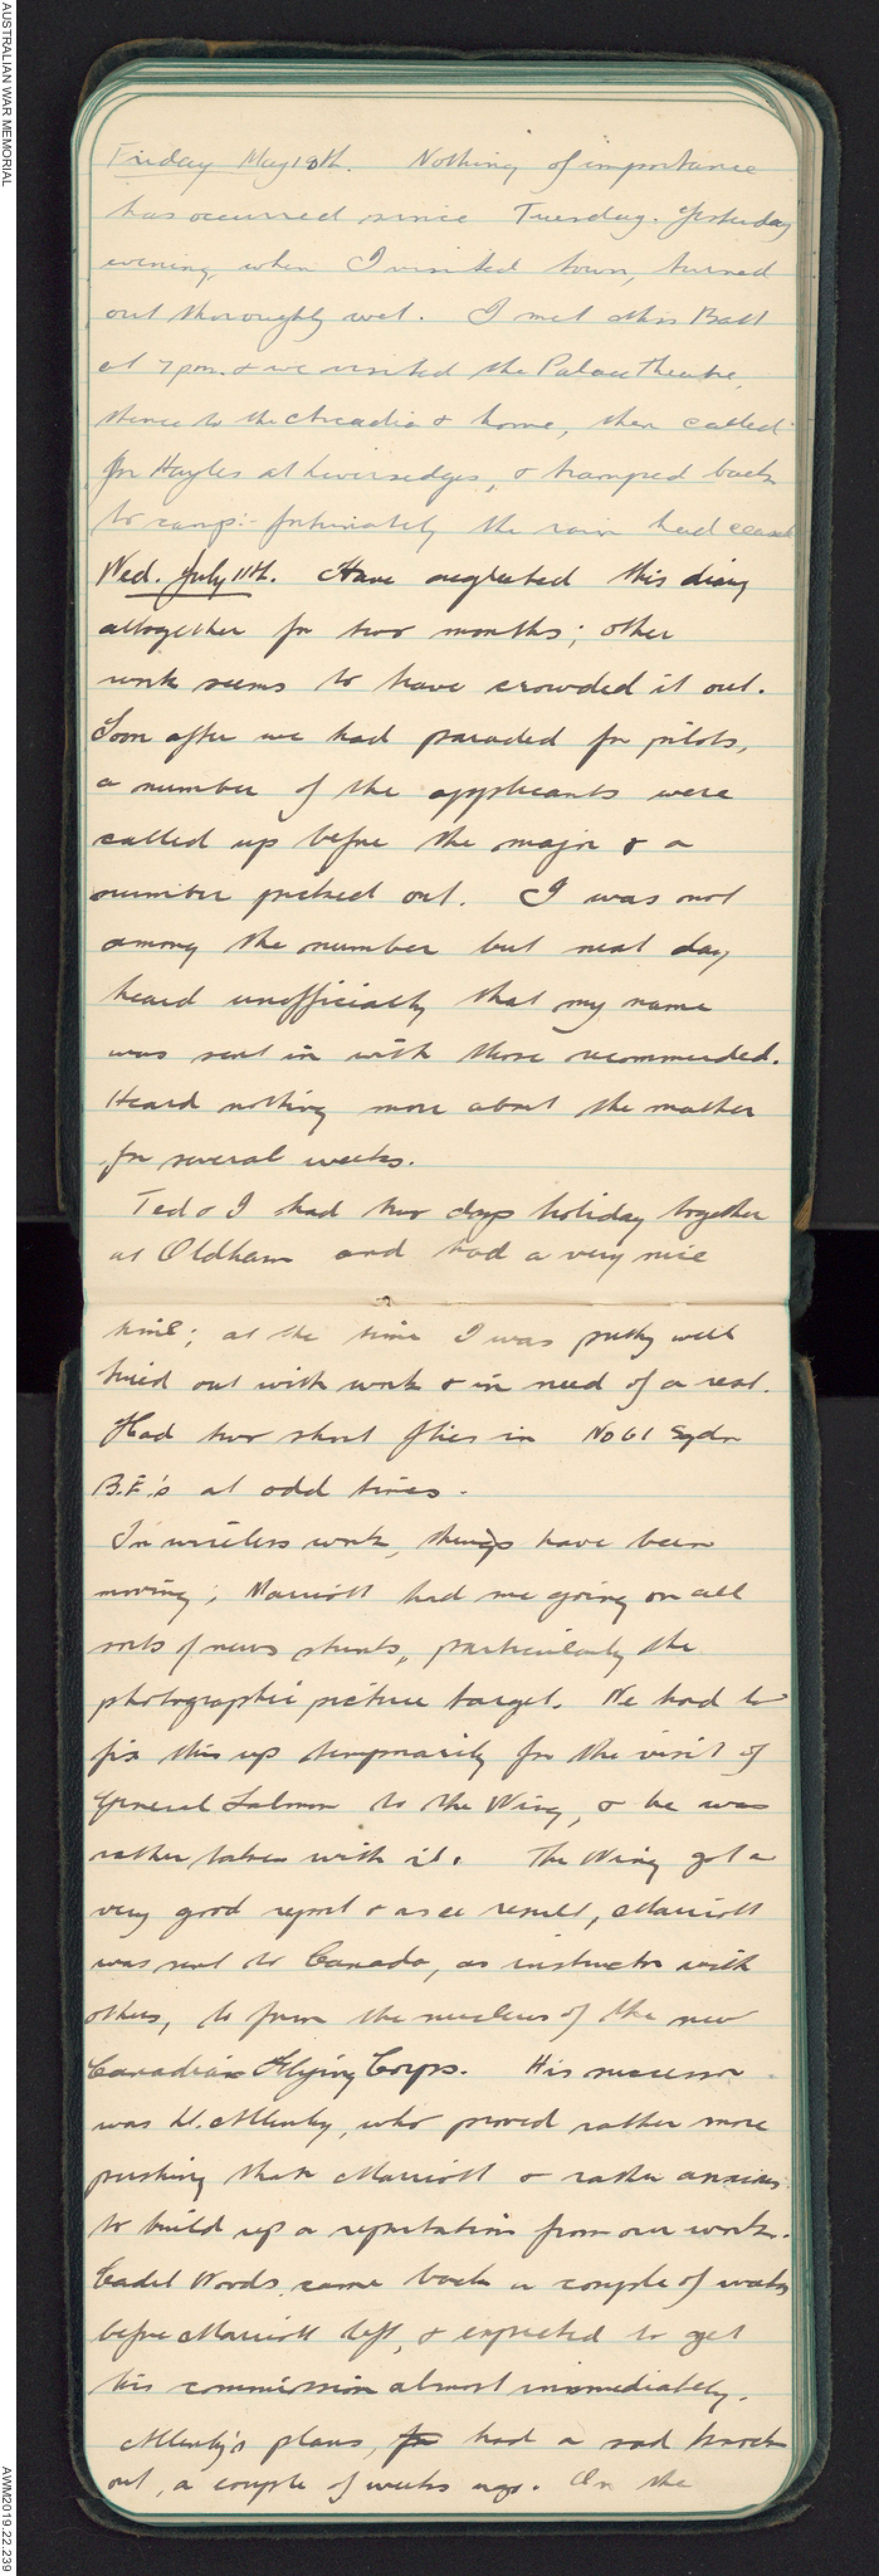 AUSTRALIAN WAR MEMORIAL
Friday May 18th. Nothing of importance
has occurred since Tuesday. Yesterday
evening, when I visited town, turned
out thoroughly wet. I met Miss Ball
at 7 pm. & we visited the Palace Theatre,
thence to the Arcadia & home, then called
for Hayles at Liversedges, & tramped back
to camp:- fortunately the rain had ceased
Wed. July 11th. Have neglected this diary
altogether for two months; other
work seems to have crowded it out.
Soon after we had paraded for pilots,
a number of the applicants were
called up before the major & a
number picked out. I was not
among the number but next day
heard unofficially that my name
was sent in with those recommended.
Heard nothing more about the matter
for several weeks.
Ted & I had two days holiday together
at Oldham and had a very nice
time; at the time I was pretty well
tired out with work & in need of a rest.
Had two short flies in No 61 Sqdn
B.E's at odd times.
In wireless work, things have been
moving; Marriott had me going on all
sorts of news stunts, particularly the
photographic picture target. We had to
fix this up temporarily for the visit of
General Salmon to the Wing, & he was
rather taken with it. The Wing got a
very good report & as a result, Marriott
was sent to Canada, as instructor with
others, to form the nucleus of the new
Canadian Flying Corps. His successor
was Lt. Allenby, who proved rather more
pushing than Marriott & rather anxious
to build up a reputation from our work.
Cadet Woods came back a couple of weeks
before Marriott left, & expected to get
his commission almost immediately.
Allenby's plans, had a sad knock
out, a couple of weeks ago. On the
AWM2019.22.239